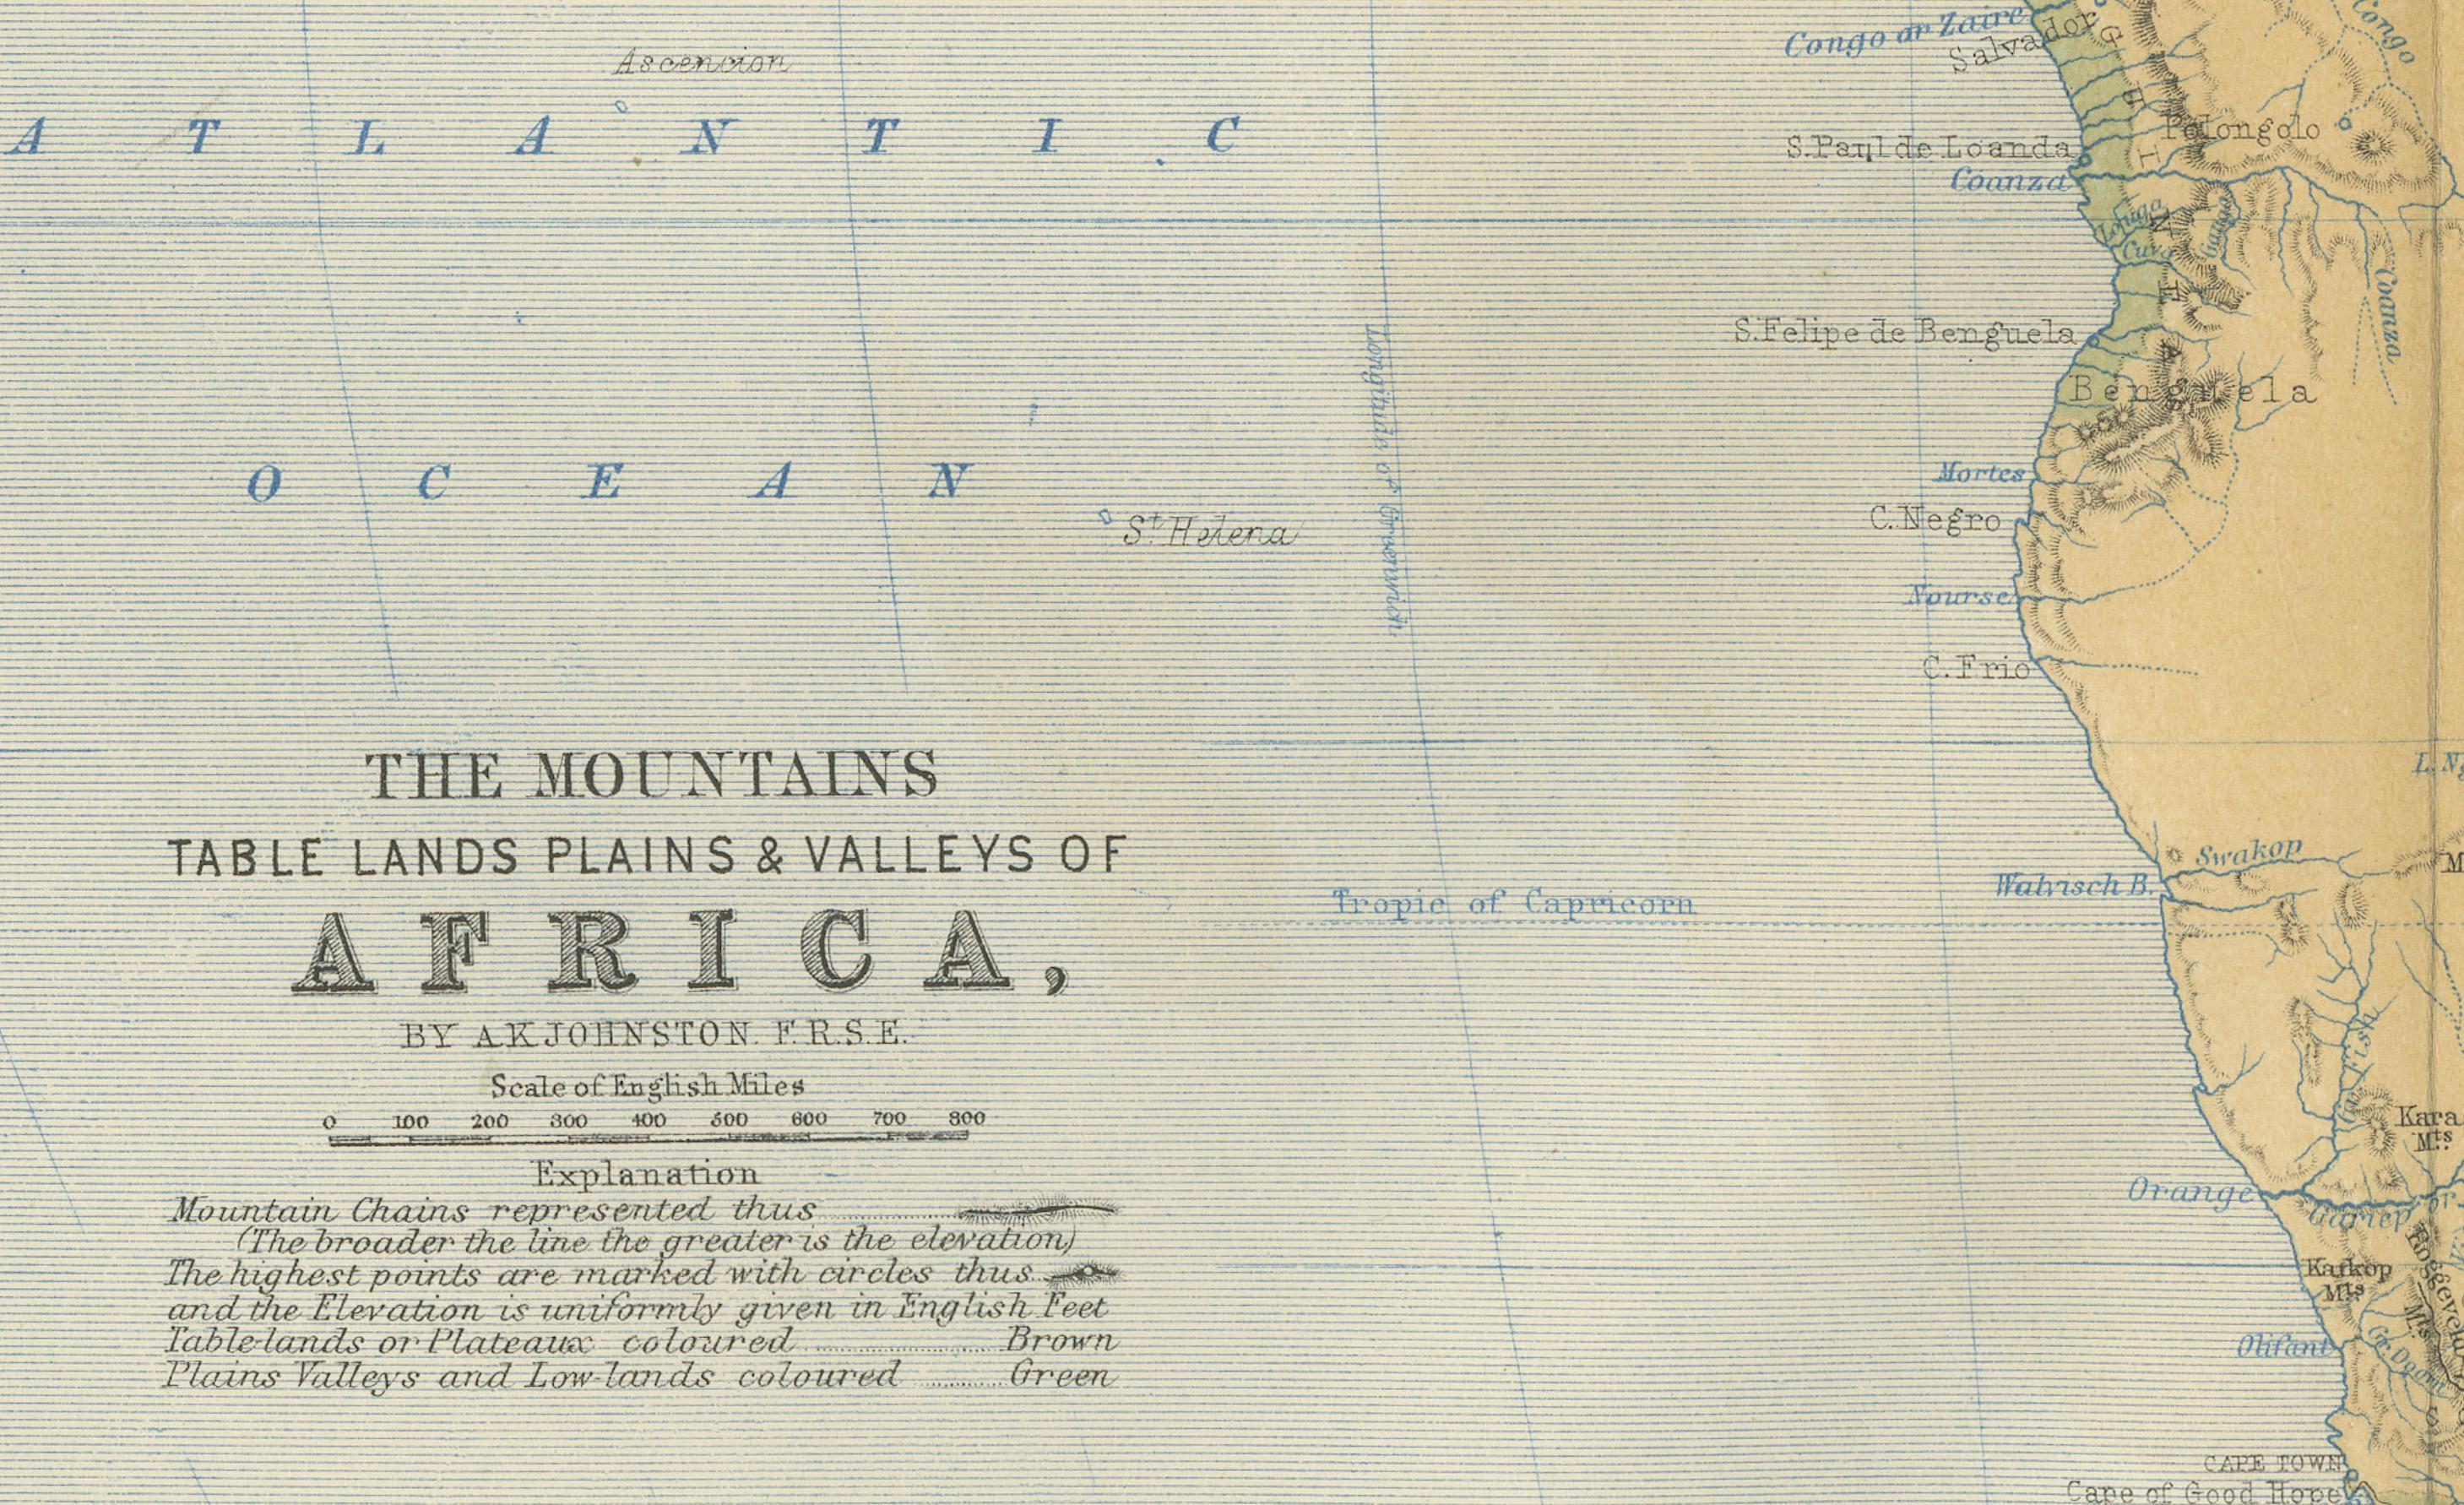 Congo or Zaire
Congo
Salvador
Ascencion
ATLANTIC
Polongolo
S. Paul de Loanda
Coanza
Longa
Cuvo
Coanza
S. Felipe de Benguela
Benguela
Longitude of Greenwich
OCEAN
Mortes
St. Helena
C. Negro
Nourse
C. Frio
THE MOUNTAINS
TABLE LANDS PLAINS & VALLEYS OF
AFRICA,
BY A.K JOHNSTON. F.R.S.E.
Scale of English Miles
0 100 200 300 400 500 600 700 800
Explanation
Mountain Chains represented thus
(The broader the line the greater is the elevation)
The highest points are marked with circles thus
and the Elevation is uniformly given in English Feet
Table-lands or Plateaux coloured Brown
Plains Valleys and Low-lands coloured Green
Swakop
Walvisch B.
Tropic of Capricorn
Fish
Kara
Mts
Orange
Gariep or
Kafkop
Mts
Olifant
CAPE TOWN
Cape of Good Hope